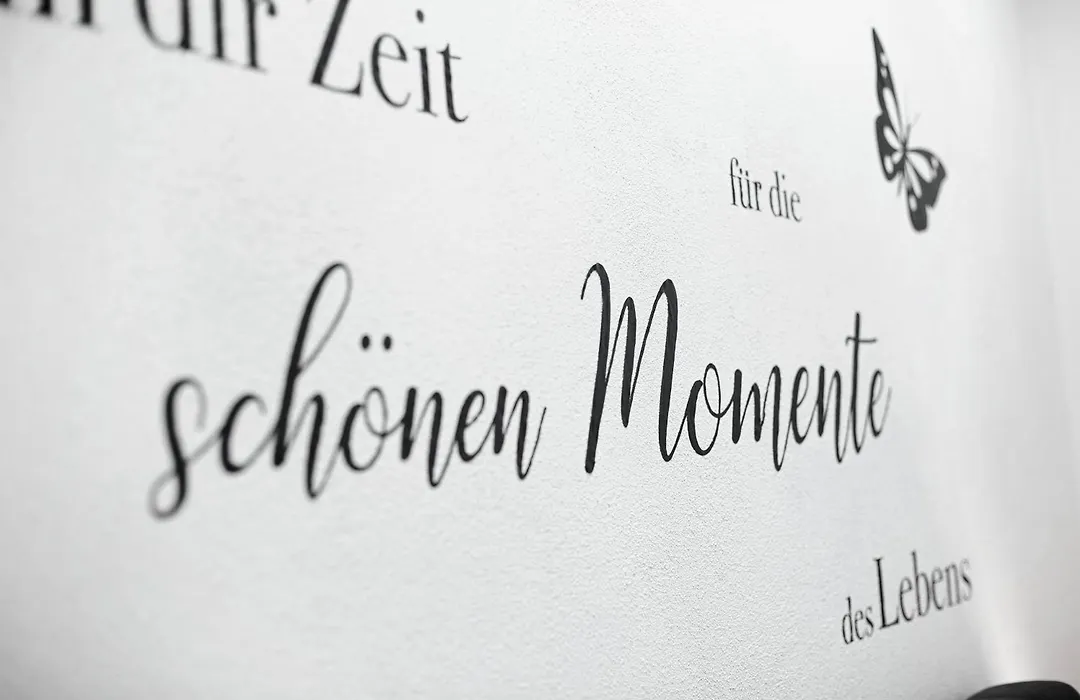 dir Zeit
für die
schönen Momente
des Lebens